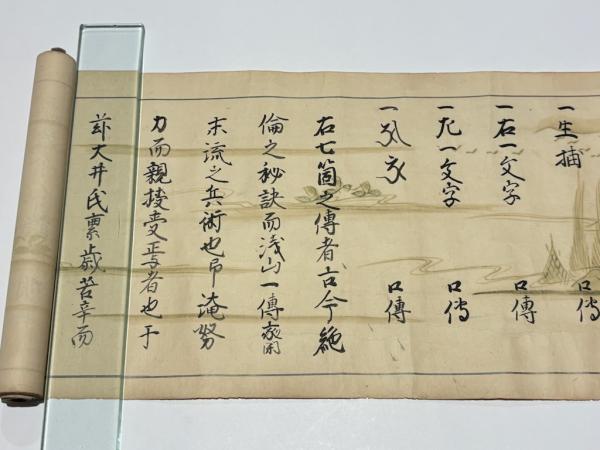 一生捕 口傳
一右一文字 口傳
一左一文字 口傳
一 口傳
右七箇之傳者古今絶
倫之秘訣而浅山一傳齋
末流之兵術也淹努
力而親授受焉者也于
茲大井氏累歳苦辛而